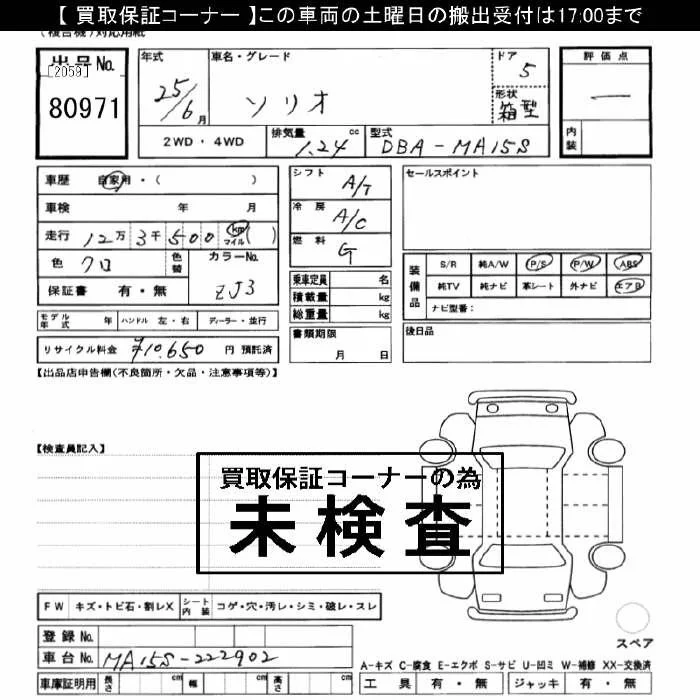 【 買取保証コーナー 】この車両の土曜日の搬出受付は17:00まで
(複合機)対応用紙
出品No. 年式 車名・グレード ドア 評価点
[2059]
80971 25/6月 ソリオ 5 形状 箱型 一
2WD・4WD 排気量 1.24 cc 型式 DBA-MA15S 内装
車歴 自家用・( ) シフト A/T セールスポイント
車検 年 月 冷房 A/C
走行 12万3千500 km マイル ( ) 燃料 G
色 クロ 色替 カラーNo. ZJ3
保証書 有・無
装備品 S/R 純A/W P/S P/W ABS
純TV 純ナビ 革シート 外ナビ エアB
ナビ型番：
乗車定員 名
積載量 kg
総重量 kg
モデル年式 年 ハンドル 左・右 ディーラー・並行
書類期限 月 日
後日品
リサイクル料金 ¥10,650 円 預託済
【出品店申告欄(不良箇所・欠品・注意事項等)】
【検査員記入】
買取保証コーナーの為
未検査
FW キズ・トビ石・割レX シート内装 コゲ・穴・汚レ・シミ・破レ・スレ
登録No.
車台No. MA15S-222902
車庫証明用 長さ cm 幅 cm 高さ cm
スペア
A-キズ C-腐食 E-エクボ S-サビ U-凹ミ W-補修 XX-交換済
工具 有・無 ジャッキ 有・無